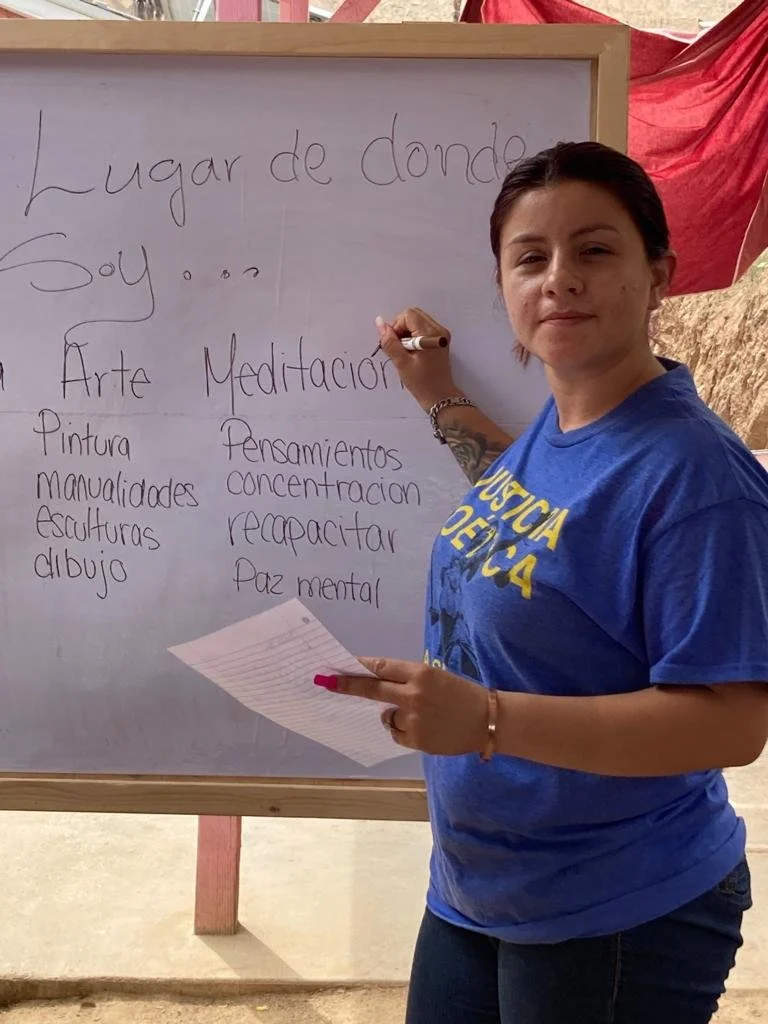 Lugar de donde
Soy...
Arte
Pintura
manualidades
esculturas
dibujo
Meditacion
Pensamientos
concentracion
recapacitar
Paz mental
JUSTICIA
POÉTICA